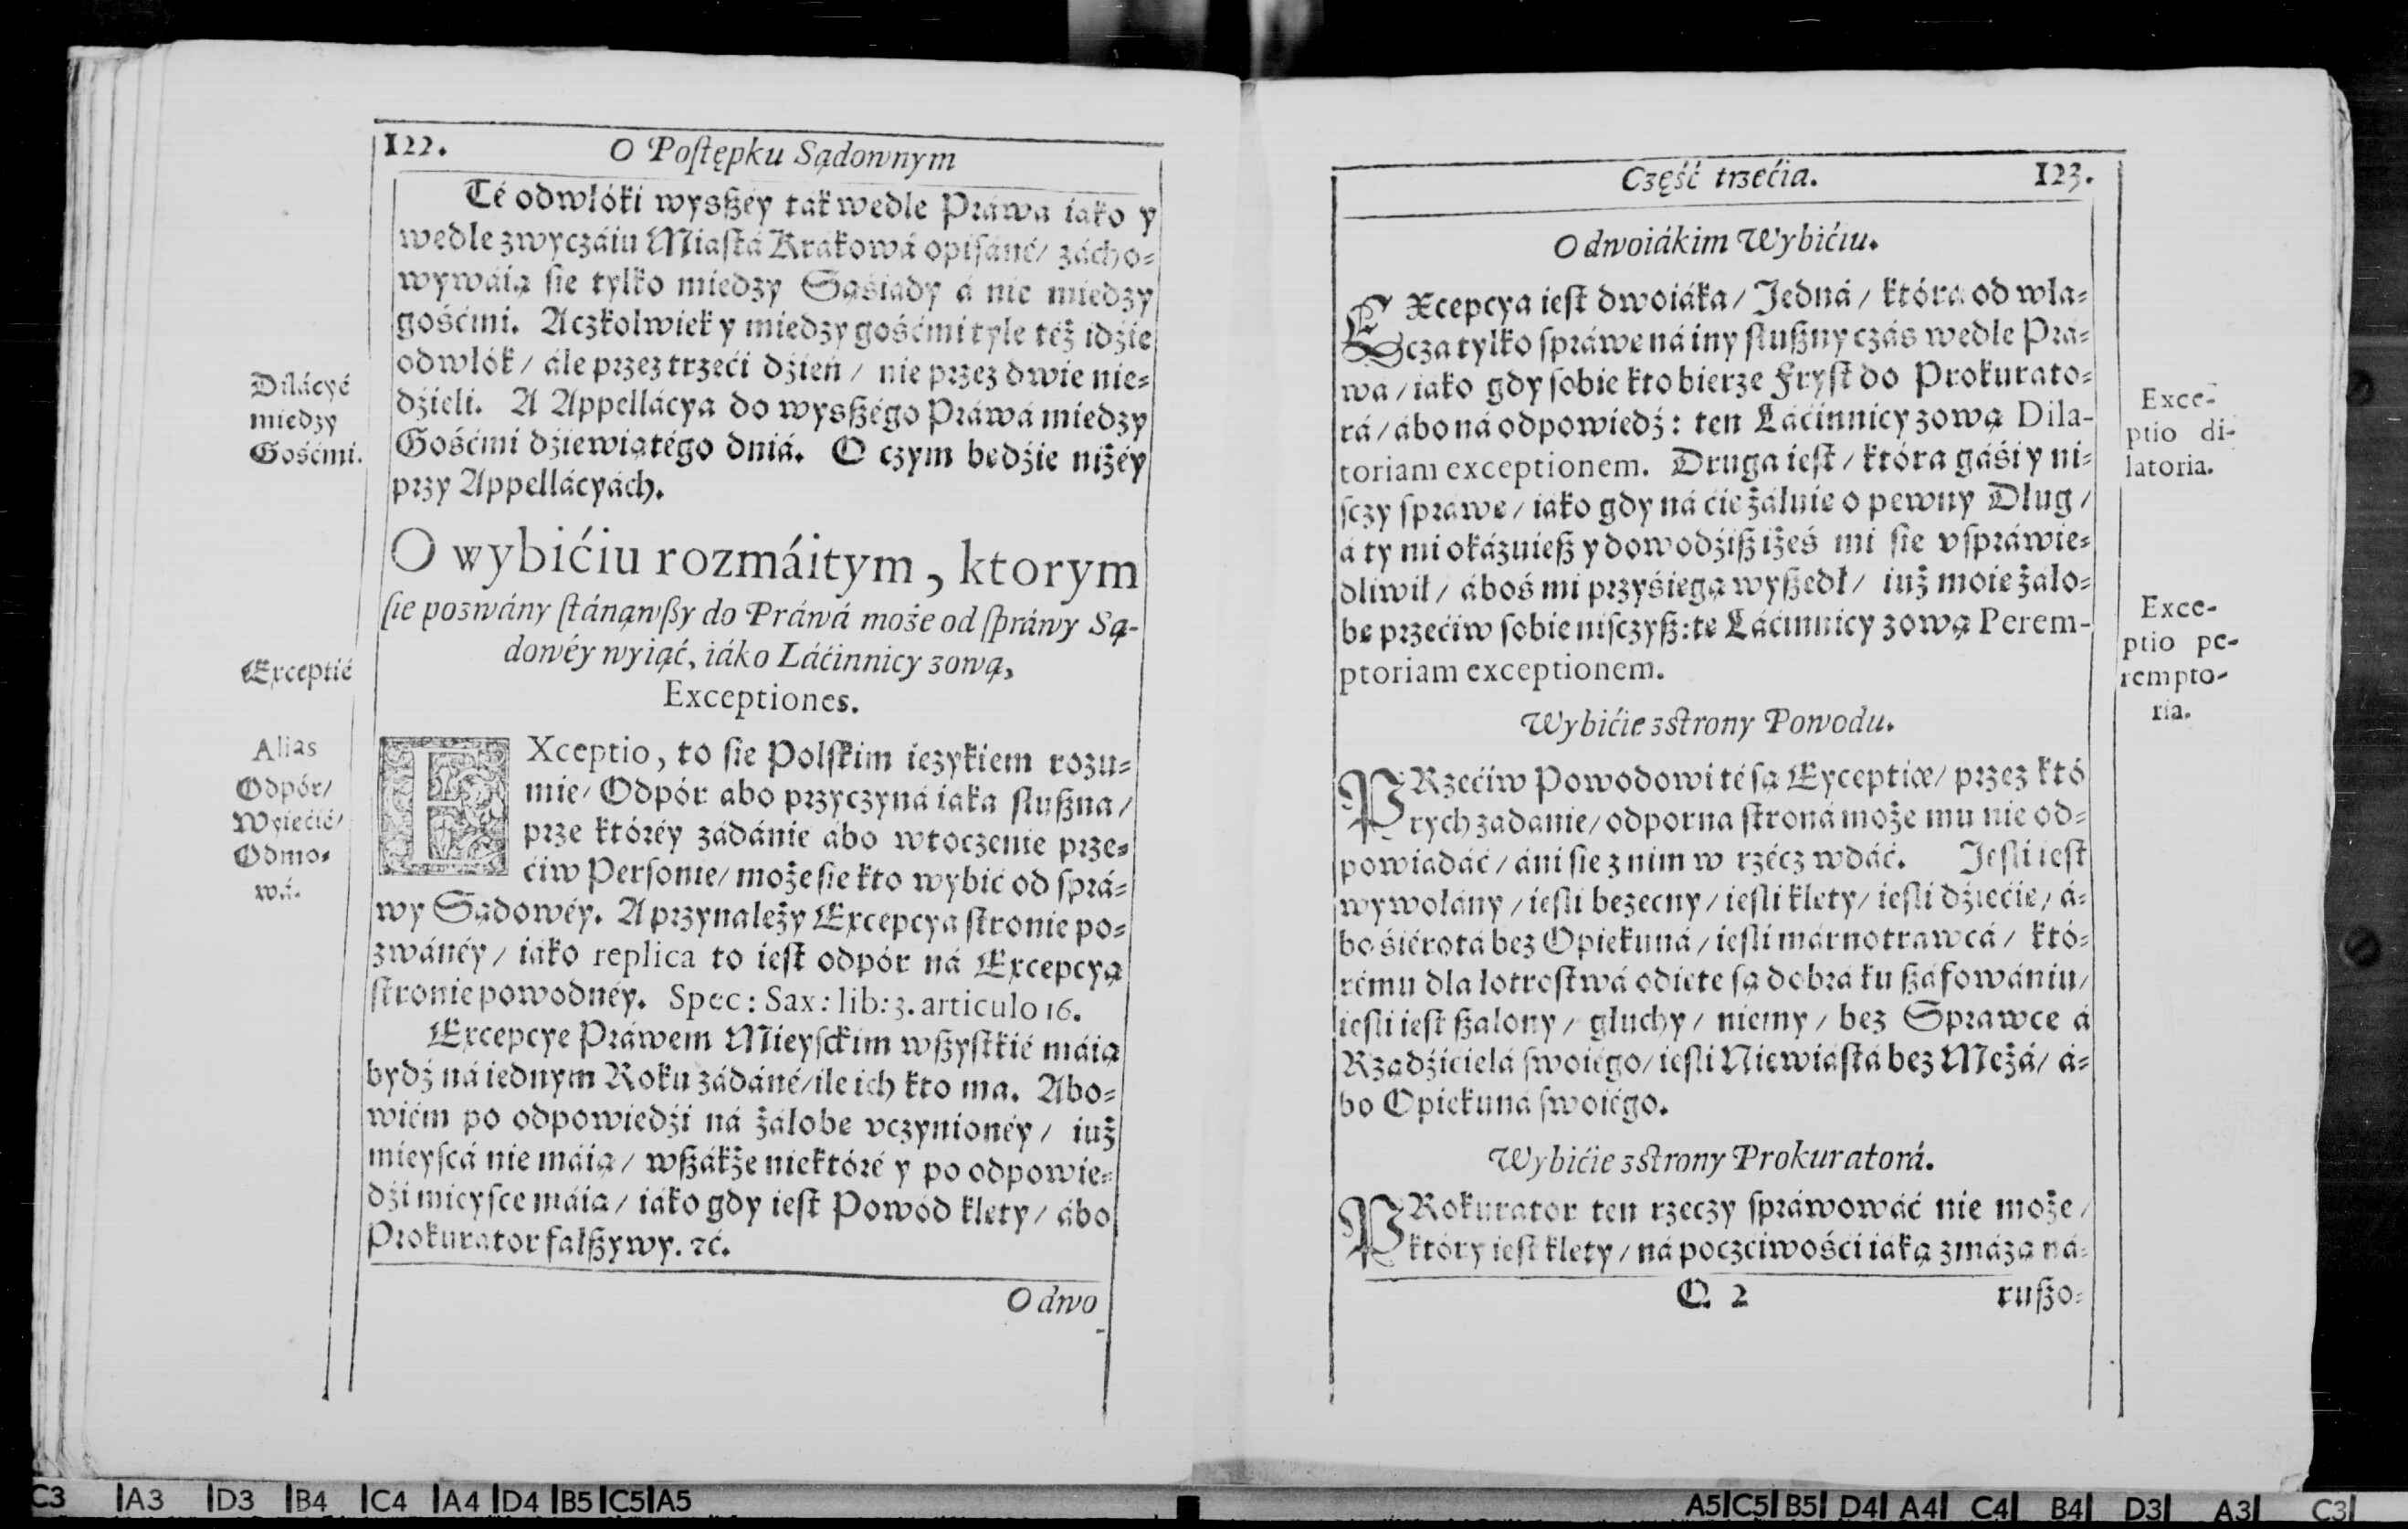 122.
O Poſtępku Sądownym
Té odwłóki wysßéy ták wedle Práwa iáko y
wedle zwyczáiu Miaſtá Krákowá opiſáné/ zácho⸗
wywáią ſie tylko miedzy Sąśiády á nie miedzy
gośćmi. Aczkolwiek y miedzy gośćmi tyle też idźie
odwłók/ ále przez trzeći dźień/ nie przez dwie nie⸗
dźieli. A Appellácya do wysßégo Práwá miedzy
Gośćmi dźiewiątégo dniá. O czym będźie niżéy
przy Appellácyách.
Dilácyé
miedzy
Gośćmi.
O wybićiu rozmáitym, ktorym
ſie pozwány ſtánąwßy do Práwá może od ſpráwy Są-
dowéy wyiąć, iáko Láćinnicy zową,
Exceptiones.
Exceptié
EXceptio, to ſie Polſkim iezykiem rozu⸗
mie/ Odpór abo przyczyná iáka ſlußna/
prze któréy zádánie ábo wtoczenie prze⸗
ćiw Perſonie/ może ſie kto wybić od ſprá⸗
wy Sądowéy. A przynależy Excepcya ſtronie po⸗
zwánéy/ iáko replica to ieſt odpór ná Excepcyą
ſtronie powodnéy. Spec: Sax: lib: 3. articulo 16.
Alias
Odpór/
Wyiećié/
Odmo⸗
wá.
Excepcye Práwem Mieyſckim wßyſtkié máią
bydź ná iednym Roku zádáné/ ile ich kto ma. Abo⸗
wiém po odpowiedźi ná żáłobe vczynionéy/ iuż
mieyſcá nie máią/ wßákże niektóré y po odpowie⸗
dźi mieyſce máią/ iáko gdy ieſt Powód klety/ ábo
Prokurator fałßywy. ⁊ć.
O dwo
-
Część trzećia.
123.
O dwoiákim Wybićiu.
EXcepcya ieſt dwoiáka/ Jedná/ która od wła⸗
cza tylko ſpráwe ná iny ſlußny czás wedle Prá⸗
wa/ iáko gdy ſobie kto bierze Fryſt do Prokurato⸗
rá/ ábo ná odpowiedź: ten Láćinnicy zową Dila-
toriam exceptionem. Druga ieſt/ która gáśi y ni⸗
ſczy ſpráwe/ iáko gdy ná ćie żáłuie o pewny Dług/
á ty mi okázuieß y dowodźiß iżeś mi ſie vſpráwie⸗
dliwił/ áboś mi przyśiegą wyßedł/ iuż moie żáło⸗
be przećiw ſobie niſczyß: te Láćinnicy zową Perem-
ptoriam exceptionem.
Exce-
ptio di-
latoria.
Exce-
ptio pe-
rempto-
ria.
Wybićie z ſtrony Powodu.
PRzećiw Powodowi té ſą Exceptiæ/ przez któ
rych zadanie/ odporna ſtroná może mu nie od⸗
powiádáć/ áni ſie z nim w rzécz wdáć. Jeſli ieſt
wywołány/ ieſli bezecny/ ieſli klety/ ieſli dźiećie/ á⸗
bo śiérotá bez Opiekuná/ ieſli márnotrawcá/ któ⸗
rému dla łotroſtwá odiete ſą dobrá ku ßáfowániu/
ieſli ieſt ßalony/ głuchy/ niemy/ bez Sprawce á
Rządźićielá ſwoiégo/ ieſli Niewiáſtá bez Mężá/ á⸗
bo Opiekuná ſwoiégo.
Wybićie z ſtrony Prokuratorá.
PRokurator ten rzeczy ſpráwowáć nie może/
który ieſt klety/ ná poczćiwośći iáką zmázą ná⸗
Q 2
rußo⸗
C3 A3 D3 B4 C4 A4 D4 B5 C5 A5
A5 C5 B5 D4 A4 C4 B4 D3 A3 C3